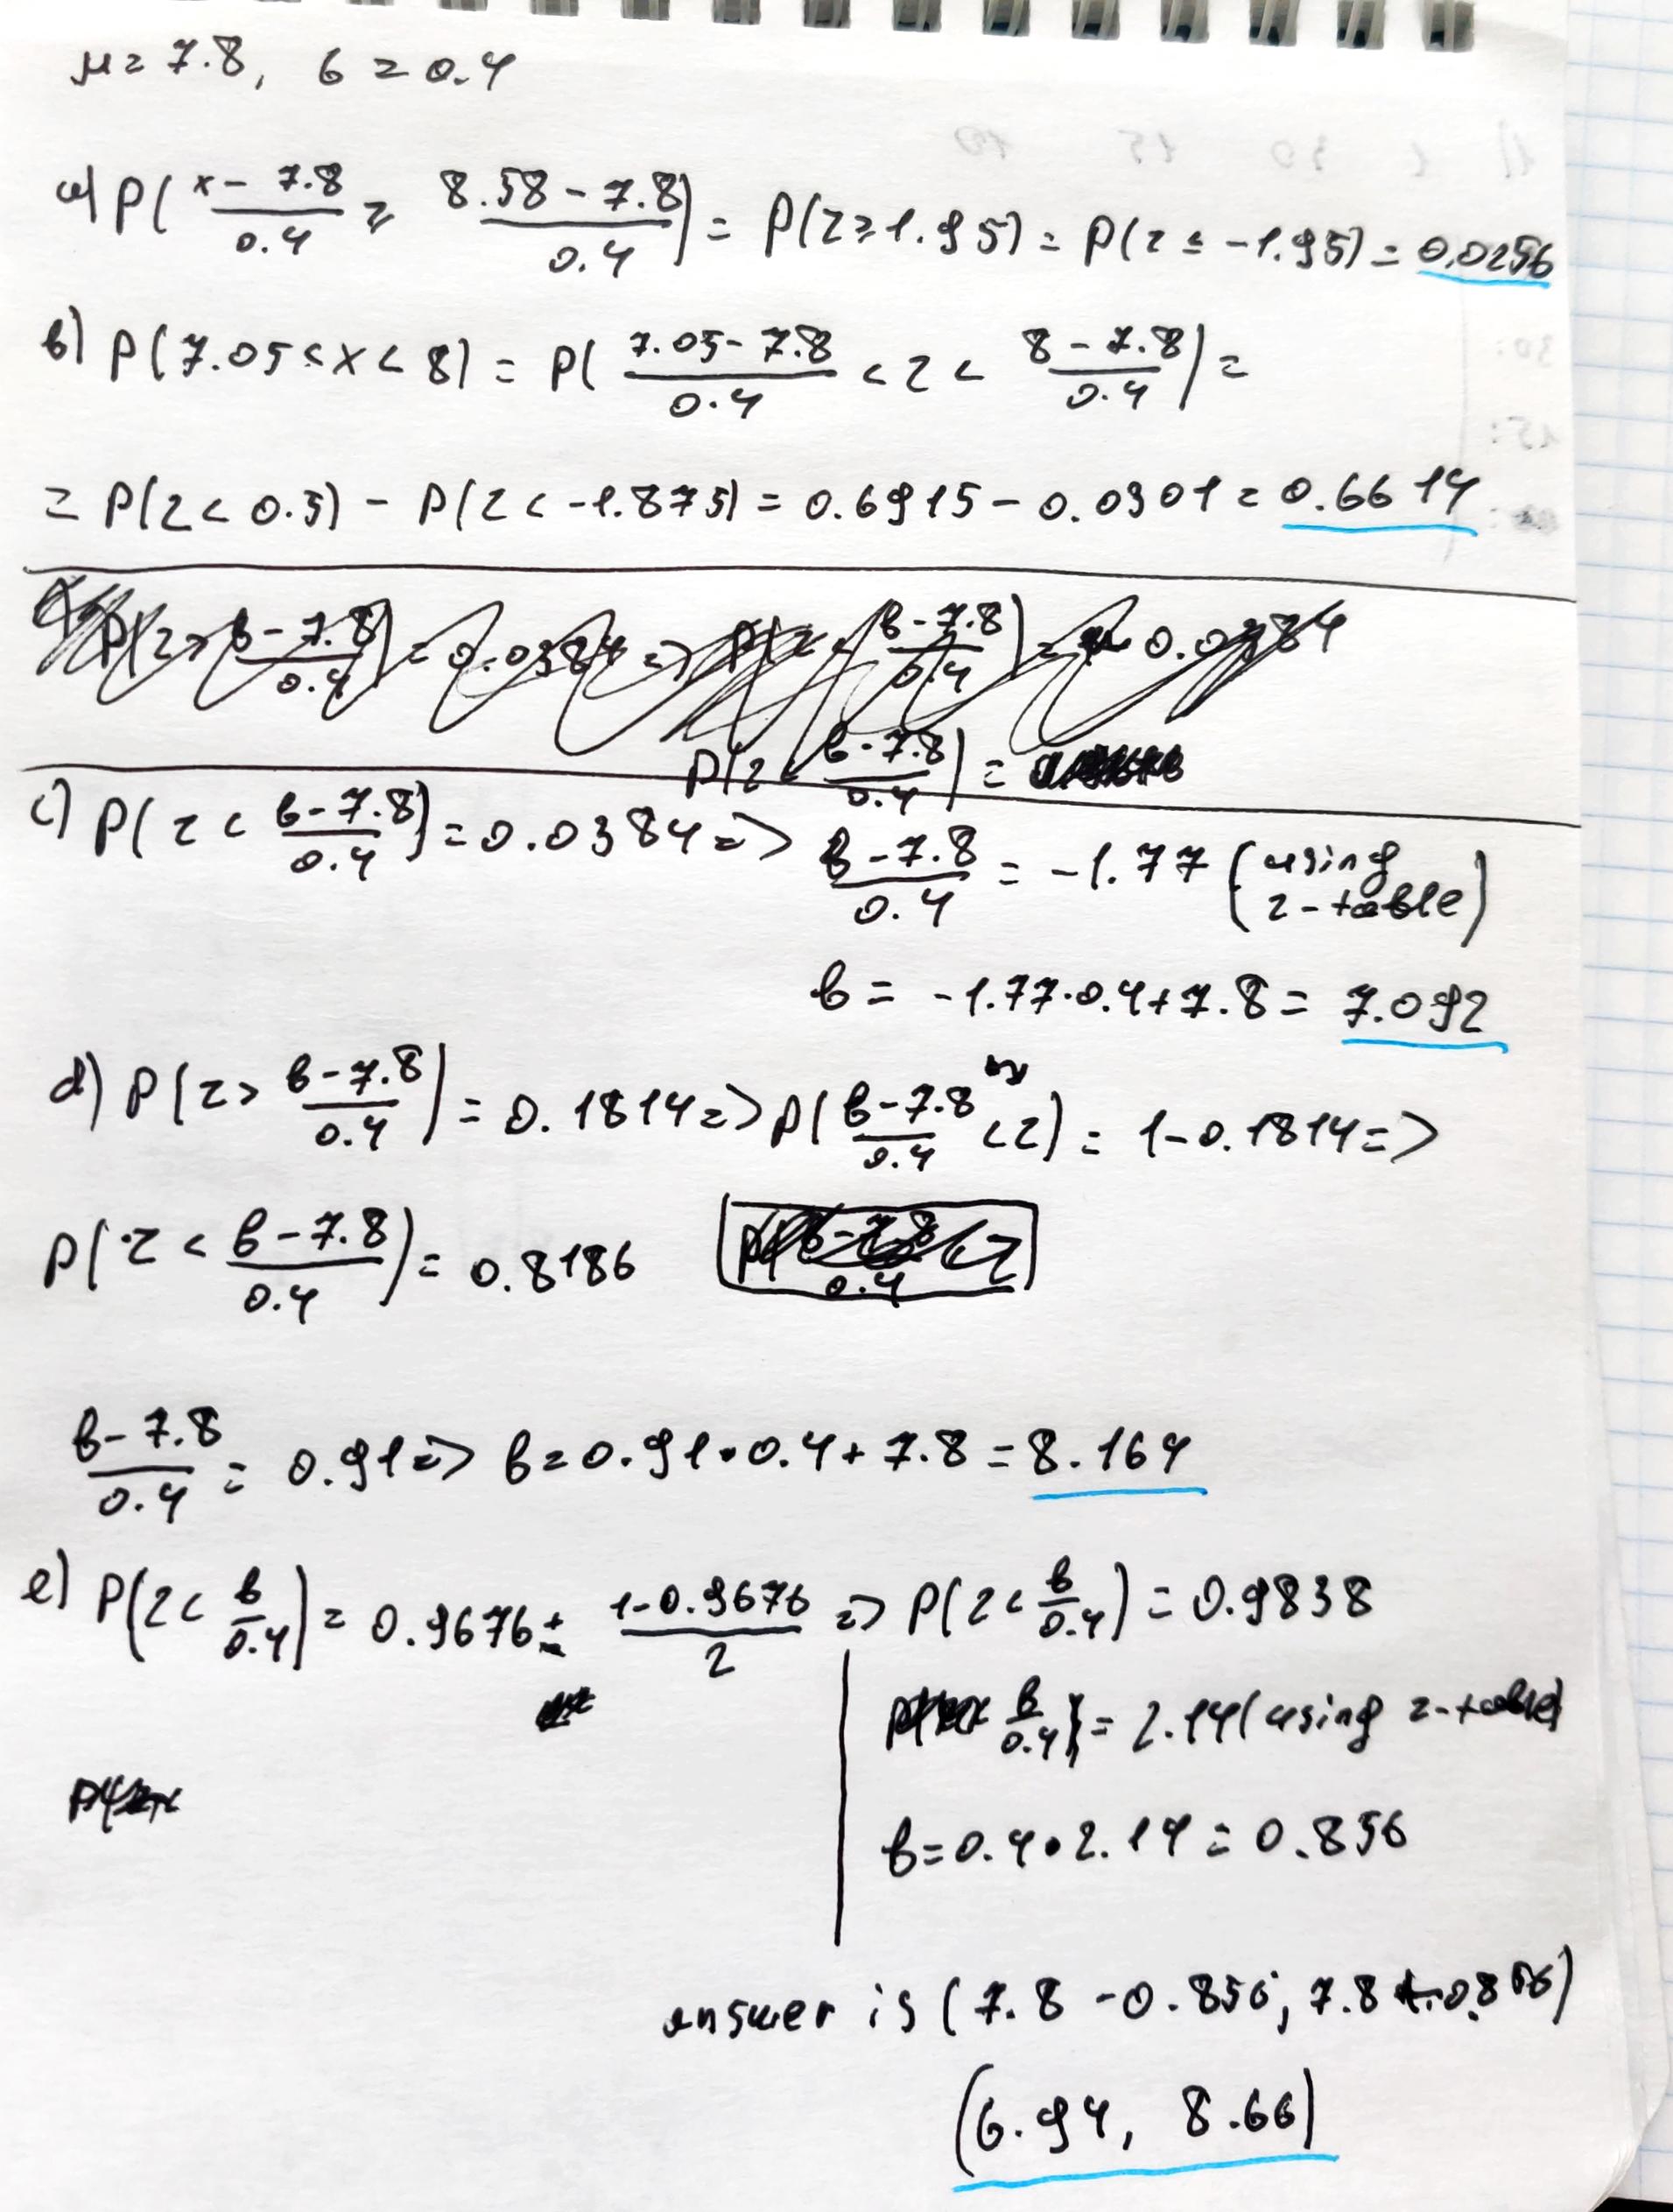 μ = 7.8, б = 0.4
a) P( (x - 7.8)/0.4 ≥ (8.58 - 7.8)/0.4 ) = P(z ≥ 1.95) = P(z ≤ -1.95) = 0.0256
б) P(7.05 < x < 8) = P( (7.05 - 7.8)/0.4 < z < (8 - 7.8)/0.4 ) =
= P(z < 0.5) - P(z < -1.875) = 0.6915 - 0.0301 = 0.6614
P(z > (в - 7.8)/0.4) = 0.0384 => (в - 7.8)/0.4) = 0.0384
P(z < (в - 7.8)/0.4) =
c) P(z < (в - 7.8)/0.4) = 0.0384 => (в - 7.8)/0.4 = -1.77 (using z-table)
в = -1.77 · 0.4 + 7.8 = 7.092
d) P(z > (в - 7.8)/0.4) = 0.1814 => P((в - 7.8)/0.4 < z) = 1 - 0.1814 =>
P(z < (в - 7.8)/0.4) = 0.8186 P((в - 7.8)/0.4 < z
(в - 7.8)/0.4 = 0.91 => в = 0.91 · 0.4 + 7.8 = 8.164
e) P(z < в/0.4) = 0.9676 + (1 - 0.9676)/2 => P(z < в/0.4) = 0.9838
в/0.4 = 2.14 (using z-table)
в = 0.4 · 2.14 = 0.856
answer is (7.8 - 0.856; 7.8 + 0.856)
(6.94, 8.66)